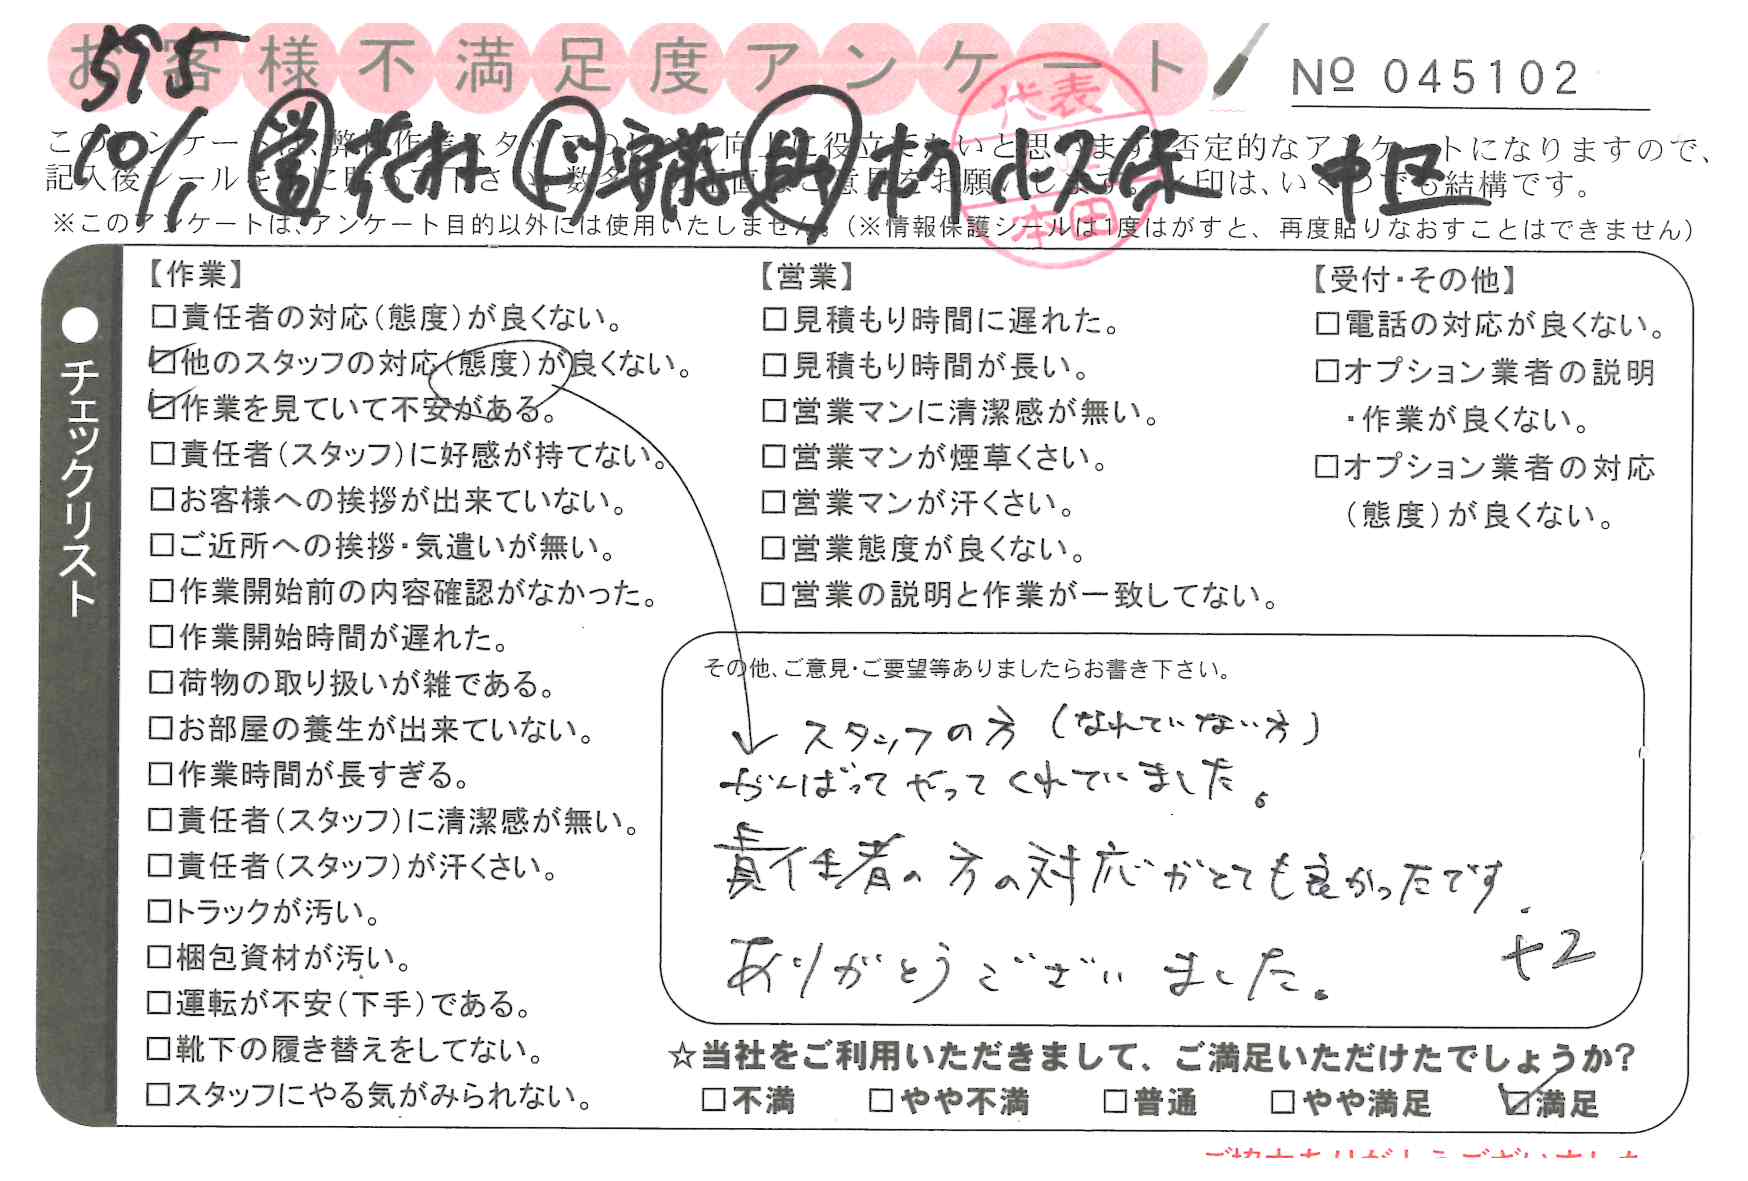 お客様不満足度アンケート
№ 045102
595
10/1
中区
このアンケートは、弊社作業スタッフのレベル向上に役立てたいと思います。否定的なアンケートになりますので、
記入後シールを
※このアンケートは、アンケート目的以外には使用いたしません。(※情報保護シールは1度はがすと、再度貼りなおすことはできません)
代表
本田
●チェックリスト
【作業】
□責任者の対応(態度)が良くない。
☑他のスタッフの対応(態度)が良くない。
☑作業を見ていて不安がある。
□責任者(スタッフ)に好感が持てない。
□お客様への挨拶が出来ていない。
□ご近所への挨拶・気遣いが無い。
□作業開始前の内容確認がなかった。
□作業開始時間が遅れた。
□荷物の取り扱いが雑である。
□お部屋の養生が出来ていない。
□作業時間が長すぎる。
□責任者(スタッフ)に清潔感が無い。
□責任者(スタッフ)が汗くさい。
□トラックが汚い。
□梱包資材が汚い。
□運転が不安(下手)である。
□靴下の履き替えをしてない。
□スタッフにやる気がみられない。
【営業】
□見積もり時間に遅れた。
□見積もり時間が長い。
□営業マンに清潔感が無い。
□営業マンが煙草くさい。
□営業マンが汗くさい。
□営業態度が良くない。
□営業の説明と作業が一致してない。
【受付・その他】
□電話の対応が良くない。
□オプション業者の説明
・作業が良くない。
□オプション業者の対応
(態度)が良くない。
その他、ご意見・ご要望等ありましたらお書き下さい。
スタッフの方(なれていない方)
がんばってやってくれていました。
責任者の方の対応がとても良かったです.
ありがとうございました。
+2
☆当社をご利用いただきまして、ご満足いただけたでしょうか?
□不満 □やや不満 □普通 □やや満足 ☑満足
ご協力ありがとうございました